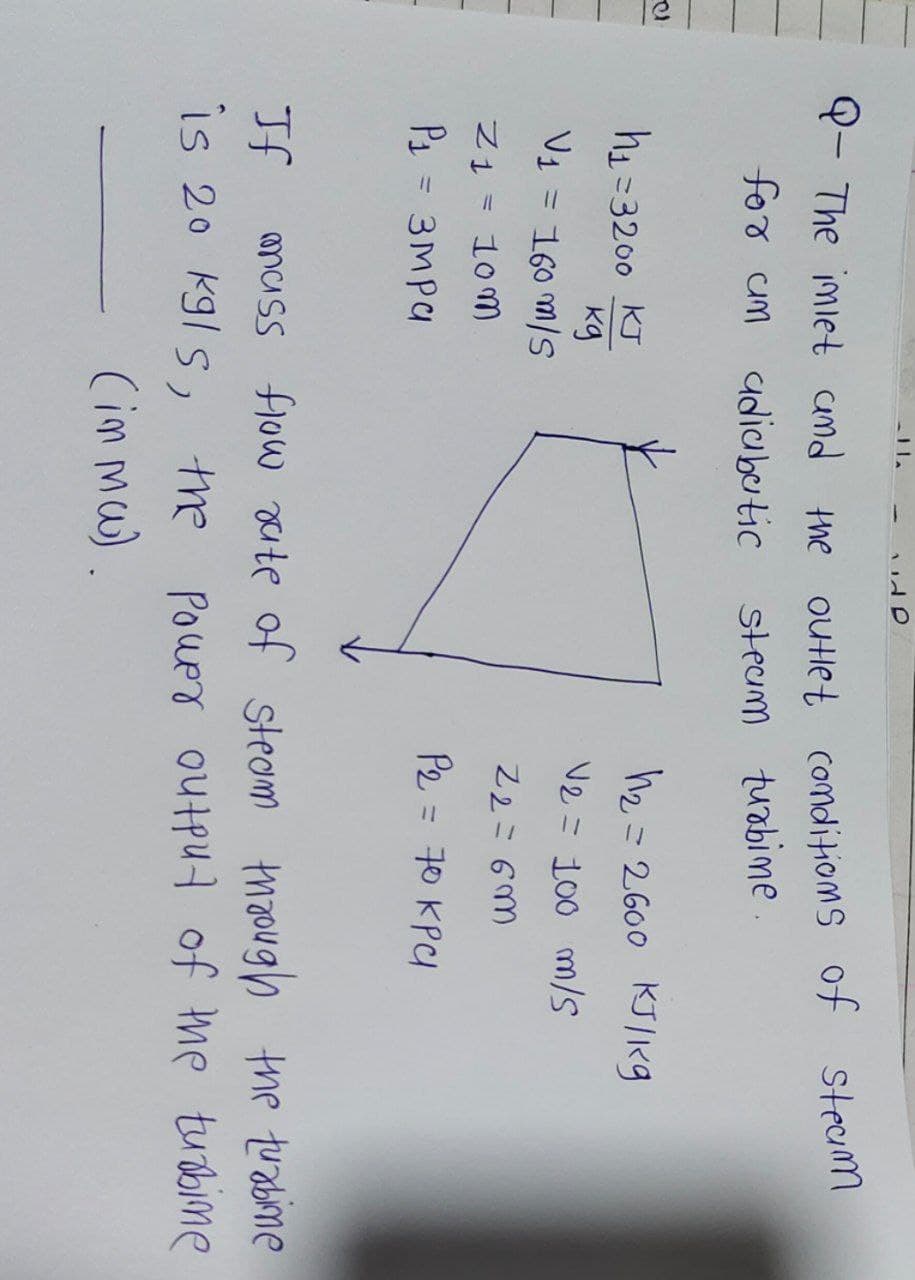 Q- The inlet and the outlet conditions of steam
for an adiabatic steam turbine.
h1 = 3200 KJ/kg
V1 = 160 m/s
Z1 = 10m
P1 = 3MPa
h2 = 2600 KJ/kg
V2 = 100 m/s
Z2 = 6m
P2 = 70 KPa
If mass flow rate of steam through the turbine
is 20 kg/s, the power output of the turbine
______ (in MW).